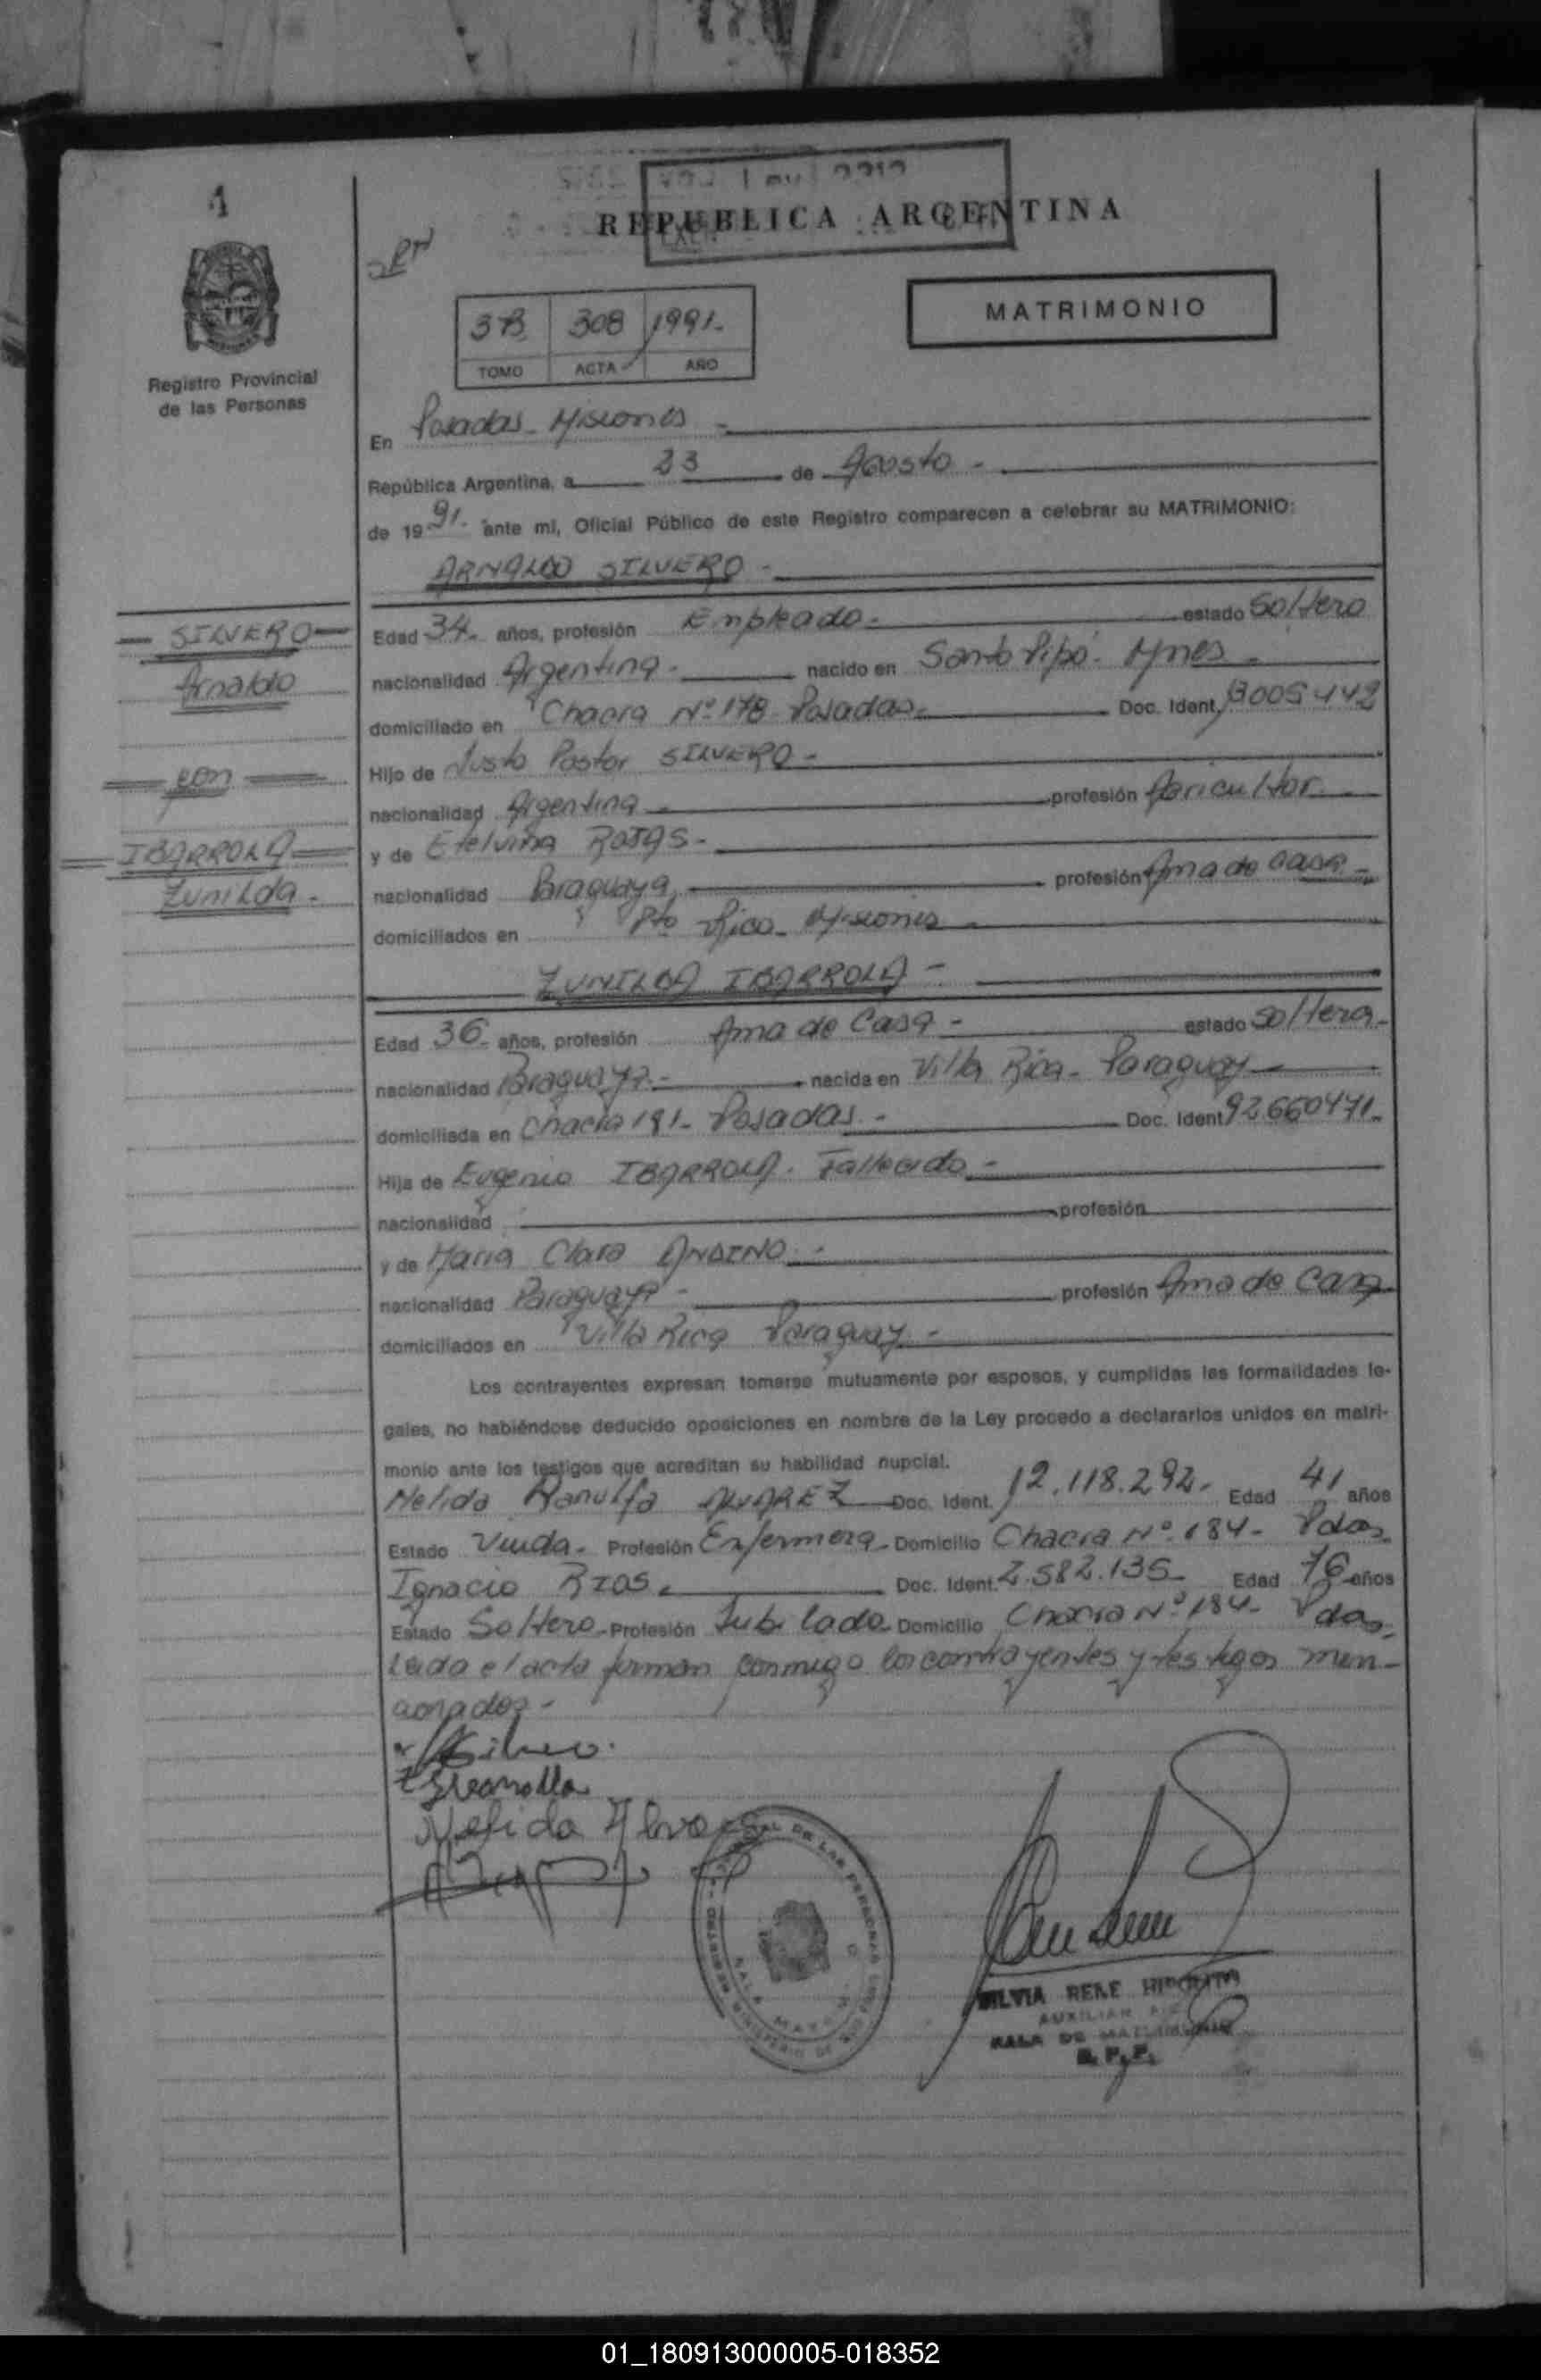 1
REPUBLICA ARGENTINA
MATRIMONIO
3B 308 1991.-
TOMO ACTA AÑO
Registro Provincial
de las Personas
En Posadas - Misiones -
República Argentina, a 23 de Agosto -
de 19 91.- ante mí, Oficial Público de este Registro comparecen a celebrar su MATRIMONIO:
ARNALDO SILVERO -
SILVERO
Arnaldo
con
IBARROLA
Zunilda -
Edad 34.- años, profesión Empleado.- estado Soltero
nacionalidad Argentina.- nacido en Santo Pipó - Mnes -
domiciliado en Chacra Nº 178 Posadas.- Doc. Ident. 13005442
Hijo de Justo Pastor SILVERO -
nacionalidad Argentina - profesión Agricultor. -
y de Etelvina ROJAS -
nacionalidad Paraguaya, profesión Ama de casa -
domiciliados en Pto Rico - Misiones -
ZUNILDA IBARROLA -
Edad 36.- años, profesión Ama de Casa - estado Soltera -
nacionalidad Paraguaya.- nacida en Villa Rica - Paraguay -
domiciliada en Chacra 181 - Posadas. - Doc. Ident. 92.660471.-
Hija de Eugenio IBARROLA - Fallecido -
nacionalidad profesión
y de Maria Clara ANDINO. -
nacionalidad Paraguaya - profesión Ama de Casa
domiciliados en Villa Rica Paraguay -
Los contrayentes expresan tomarse mutuamente por esposos, y cumplidas las formalidades le-
gales, no habiéndose deducido oposiciones en nombre de la Ley procedo a declararlos unidos en matri-
monio ante los testigos que acreditan su habilidad nupcial.
Nelida Ranulfa ALVAREZ Doc. Ident. 12.118.292.- Edad 41 años
Estado Viuda - Profesión Enfermera - Domicilio Chacra Nº 184 - Pdas.
Ignacio RIOS. Doc. Ident. 2.582.135 Edad 76 años
Estado Soltero - Profesión Jubilado - Domicilio Chacra Nº 184 - Pdas.
Leida el acta firman conmigo los contrayentes y testigos men-
cionados -
Nelida Alvarez
SILVIA RENE HIPOLITO
AUXILIAR
SALA DE MATRIMONIO
R. P. P.
01_180913000005-018352